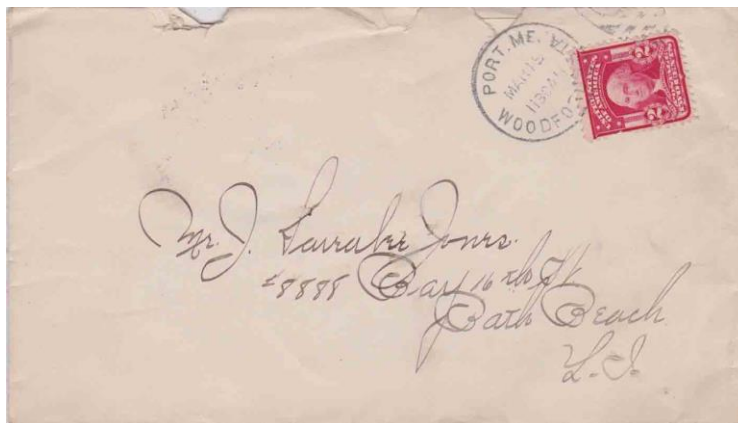 PORT. ME.
MAR
1130 A
WOODFO
Mr. J. Larrabee Jones.
#8888 Bay 16th St
Bath Beach
L.I.